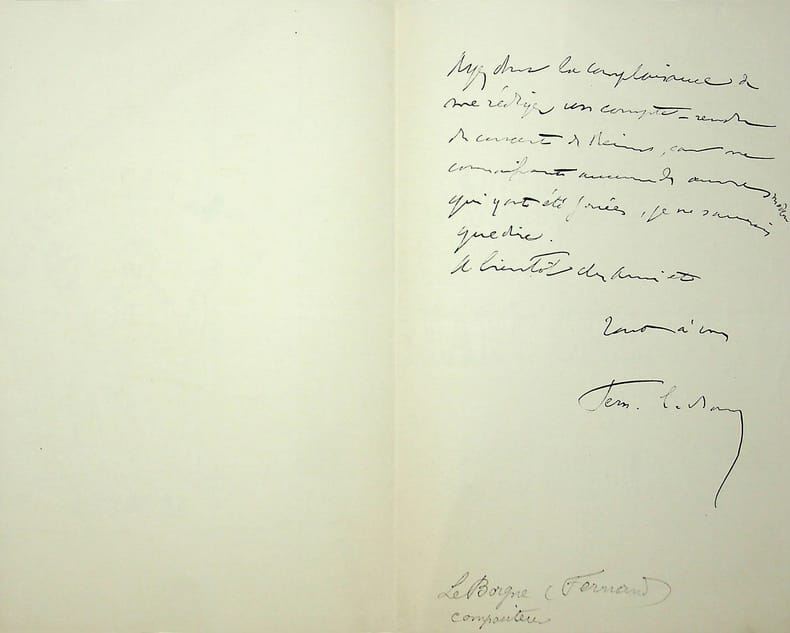 Ayez donc la complaisance de
me rédiger un compte-rendu
du concert de Reims, car ne
connaissant aucune des œuvres
qui y ont été jouées, je ne saurais
que dire.
A bientôt cher Ami et
tout à vous
Fern. Le Borne
Le Borgne (Fernand)
compositeur